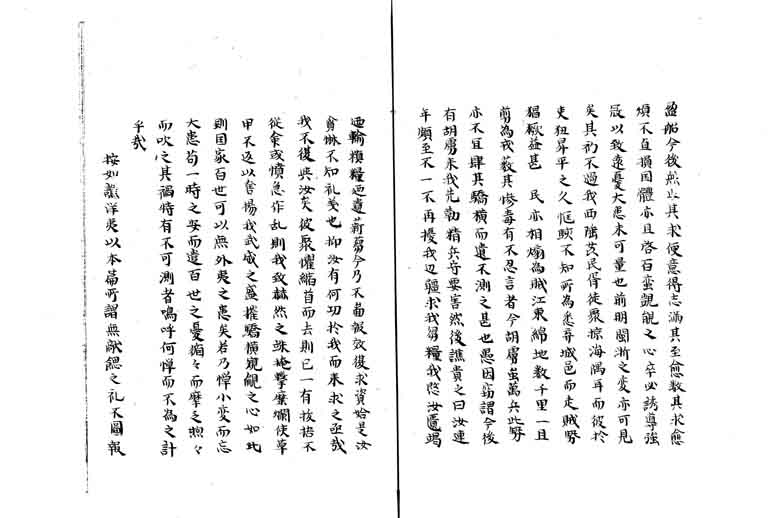 盈船今後無出其求便意得志滿其至愈數其求愈
煩不直損国體亦且啓百蛮覬覦之心卒必誘導強
冠以致遠憂大患未可量也前明閩浙之変亦可見
矣其初不過我西陲莠民胥徒聚掠海隅耳而彼於
吏狃昇平之久恇駭不知所為悉弃城邑而走賊勢
猖獗益甚 民亦相煽為賊江東綿地数千里一且
剪為我藪其惨毒有不忍言者今胡虜虽萬兵此勢
亦不宜肆其驕横而遺不測之甚也愚因窃謂今後
有胡虜来我先勒精兵守要害然後譙責之曰汝連
年頻至不一不再擾我辺疆求我芻糧我愍汝匱竭
迺輸積糧迺遺薪蒭今乃不啚報效復求資給是汝
貪惏不知礼義也抑汝有何功於我而来求之亟哉
我不復與汝矣彼聚懼縮首而去則已一有拔扈不
従命或憤急作乱則我致赫然之誅掩撃糜爛使単
甲不返以奮揚我武威之盛摧驕横覬覦之心如此
則国家百世可以無外夷之患矣若乃憚小変而忘
大患苟一時之安而遺百世之憂循々而摩之煦々
而吹之其禍恃有不可測者嗚呼何憚而不為之計
乎哉
按如獻洋夷以本篇所謂無厭鰓之礼不圖報